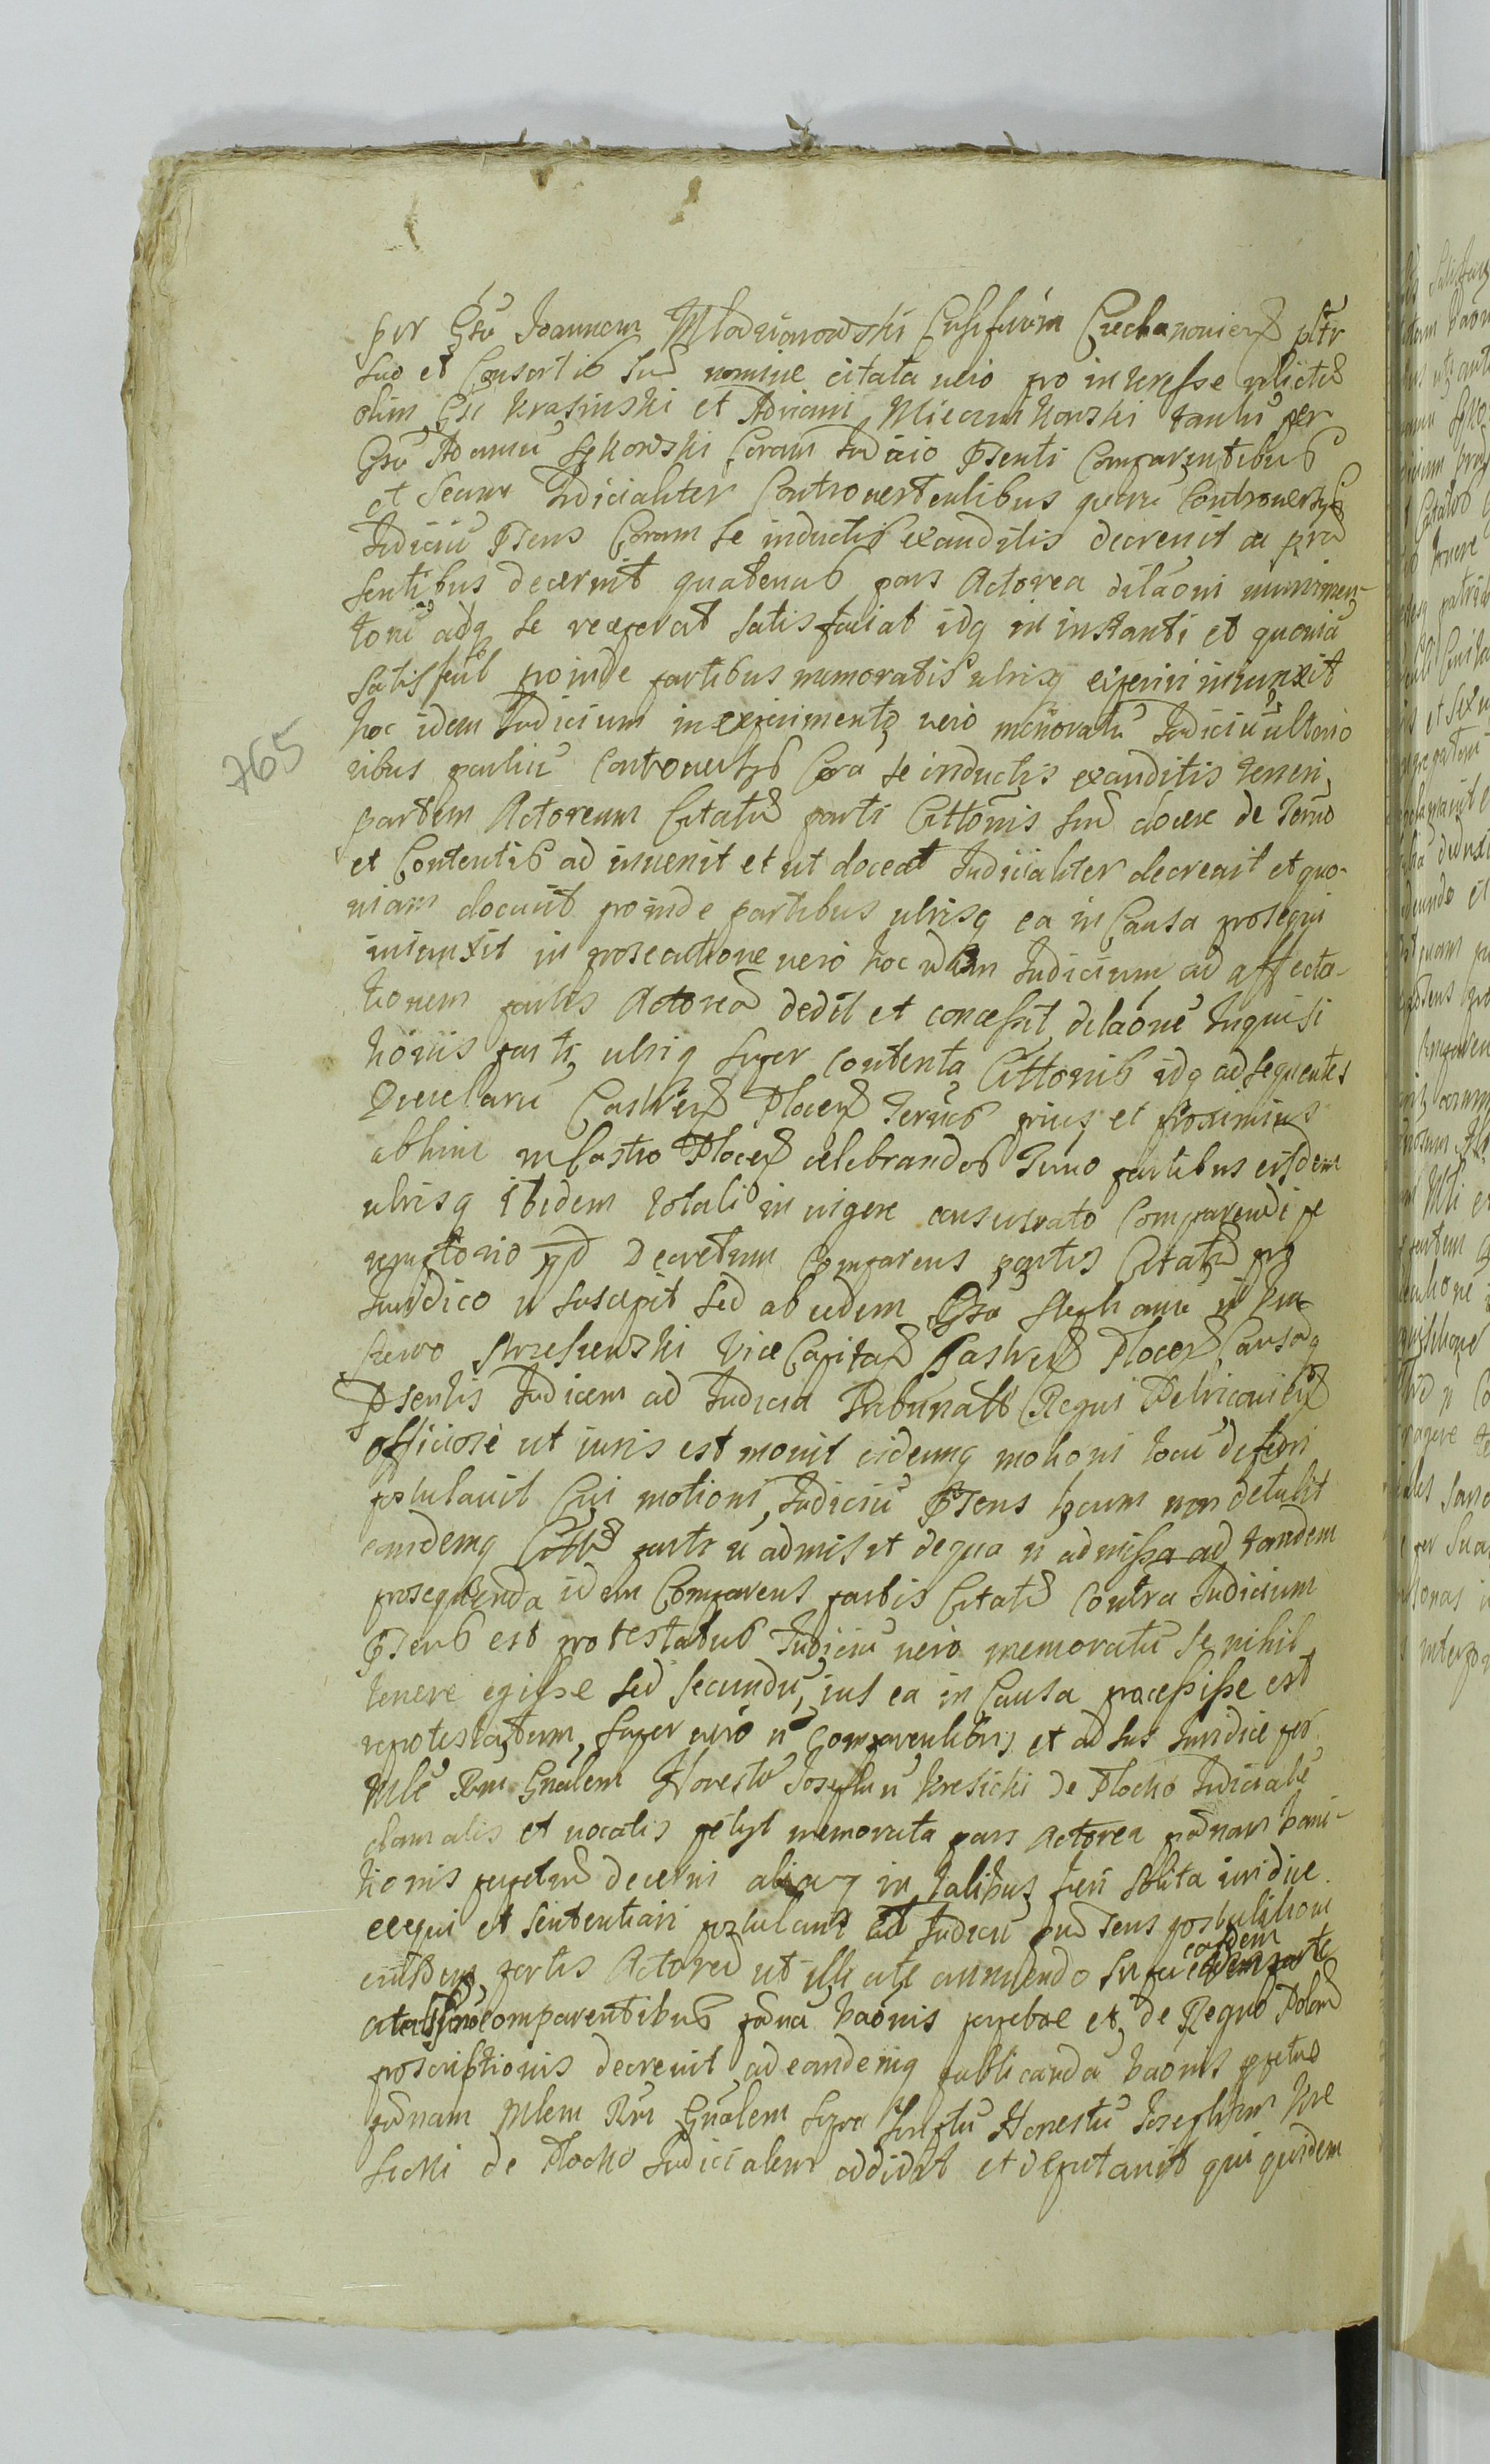 per Gsu Joannem Mladzianowski Cusiferum Ciechanouien pltr
suo et Consortis sua nomine citata uero pro interesse relictu
olim Gsi Krasinski et Adriani Mieczni Kowski tantu per
Gsu Adamu Sykowski Coram Judicio Psenti Comparentibus
et Secum Judicialiter Controuertentibus quaru Controuersys
Judiciu Psens Coram se inductis exauditis decreuit ac pra
sentibus decernit quatenus pars Actorea dilaoni munimen
toru adq se receperat satisfaciat idq in instanti et quonia
satisfecit proinde partibus memoratis utrisq experiri iniunxit
hoc idem Judicium in experimento uero memoratu Judiciu ulterio
765
ribus partiu Controuersys Cora se inductis exauditis teneri
partem Actoream Citata parti Cittonis sua docere de Termo
et Contentis ad inuenit et ut doceat Judicialiter decreuit et quo-
niam docuit proinde partibus utrisq ea in Causa prosequi
iniunxit in prosecutione uero hoc idem Judicium ad affecta-
tionem partis Actorea dedit et concessit dilaone Inquisi
tionis parti utriq super contenta Cittonis idq ad sequentes
Querelaru Castren Plocen Termos prius et proximius
abhinc in Castro Plocen celebrandos Termo partibus eisdem
utrisq ibidem totali in uigore conseruato Comparendi pe
remptorio qd Decretum Comparens partis Citata pro
Juridico n suscepit sed ab eodem Gso Stephano in
Strzeszewski Vice Capitan Castren Plocen Causaq
Psentis Judicem ad Judicia Tribunalis Regni Petricouien
officiose ut iuris est mouit eidemq motioni locu deferri
postulauit Cui motioni Judiciu Psens locum non detulit
eandemq parti n admisit de qua n admissa ad tandem
prosequenda idem Comparens partis Citata Contra Judicium
Psens est protestatus Judiciu uero memoratu se nihil
temere egisse sed secundu ius ea in Causa processisse est
reprotestatum, super uero n Comparentibus et ad Jus Juridice per
Mle Rni Gnalem Honestu Josephu Kresicki de Plocko Judiciale
clamatis et uocatis petyt memorata pars Actorea pœnam bani-
tionis perpetua decerni aliaq in talibus fieri solita iuridice
exequi et sententiari postulauit Judiciu Psens postulationi
eiusdem partis Actorea ut iustate annuendo super eadem parte
eadem
citata n comparentibus pœna baonis perpetuae et de Regno Polon
proscriptionis decreuit ad eandemq publicanda baonis perpetua
pœnam Mlem Rni Gnalem supra scriptu Honestu Josephum Kre
sicki de Plocko Judicialem addidit et deputauit qui quidem